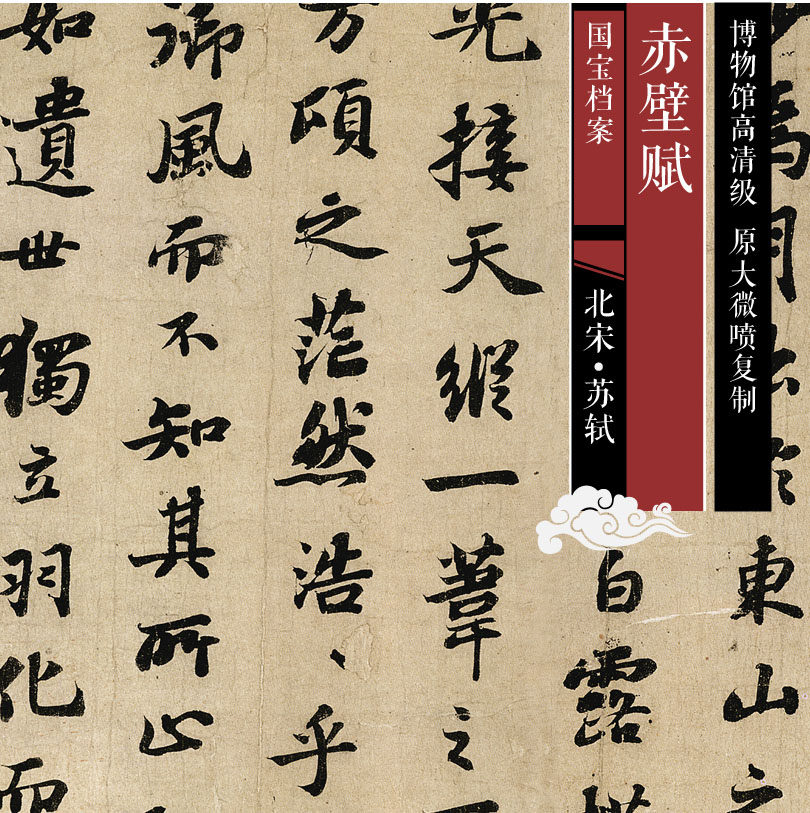 博物馆高清级 原大微喷复制
赤壁赋
国宝档案
北宋·苏轼
焉月出於東山之
白露橫
光接天縱一葦之
万頃之茫然浩、乎
御風而不知其所止
如遺世獨立羽化而